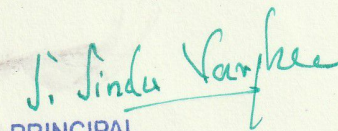 S. Sindu Varghese
PRINCIPAL